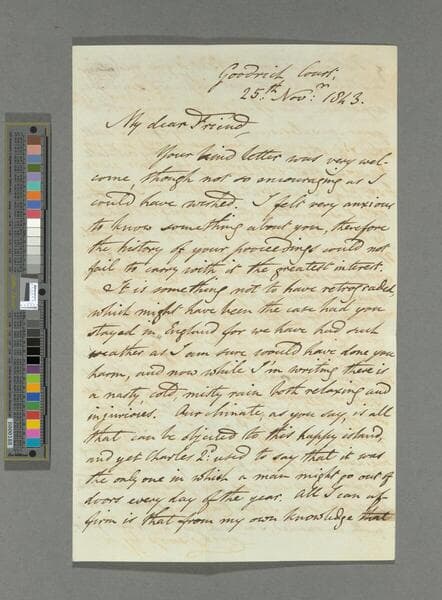 Goodrich Court,
25th Novr 1843.
My dear Friend,
Your kind letter was very wel-
come, though not so encouraging as I
could have wished. I felt very anxious
to know something about you, therefore
the history of your proceedings could not
fail to carry with it the greatest interest.
It is something not to have retrograded,
which might have been the case had you
stayed in England for we have had such
weather as I am sure would have done you
harm, and now while I'm writing there is
a nasty, cold, misty rain both relaxing and
injurious. Our climate, as you say, is all
that can be objected to this happy island,
and yet Charles 2d used to say that it was
the only one in which a man might go out of
doors every day of the year. All I can af-
firm is that from my own knowledge that